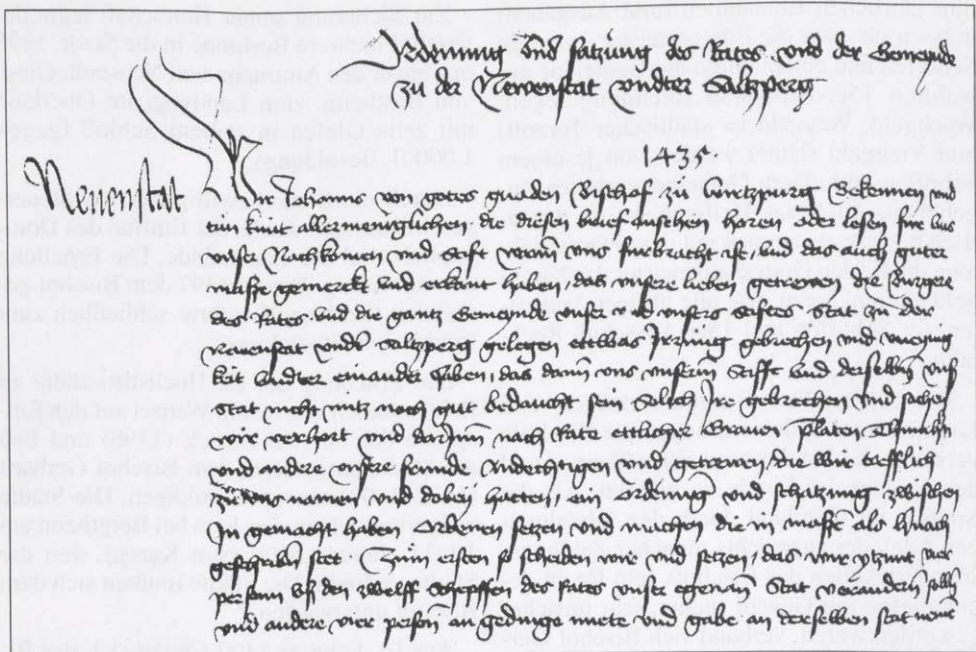 Ordnung und satzung des Rates und der Gemeinde
zu der Newenstat under Saltzperg
1435
Newenstat
Wir Johanns von gotes gnaden Bischof zu Wirtzpurg Bekennen
und tun kunt allermeniglichen die diesen brief ansehen horen oder lesen fur uns
unser Nachkomen und Stift wann uns furbracht ist, und das auch guter
masse gemerckt und erkant haben, das unsere lieben getrewen die Burgere
des Rates und die gantz Gemeynde unser und unsers Stiftes Stat zu der
Newenstat under Saltzperg gelegen ettwas Irrung gebrechen und
keit undter einander haben, das dann uns unserm Stifft und derselben unser
Stat nicht nutz noch gut bedaucht sein Solch Ire gebrechen und sachen
wir verhort und darumb nach Rate ettlicher Graven Prelaten Thumhern
und andere unsere freunde Andechtigen und getrewen, die wir trefflich
zu uns namen und dobey hetten ein ordenung und schatzung zwischen
In gemacht haben Ordenen setzen und machen die In masse als hernach
geschriben stet Zum ersten so scheiden wir und setzen, das wir ytzunt vier
person uß den zwelff Schepffen des Rates unser egenanten Stat verandern sollen
und andere vier person an gedinge miete und gabe an derselben stat nemen